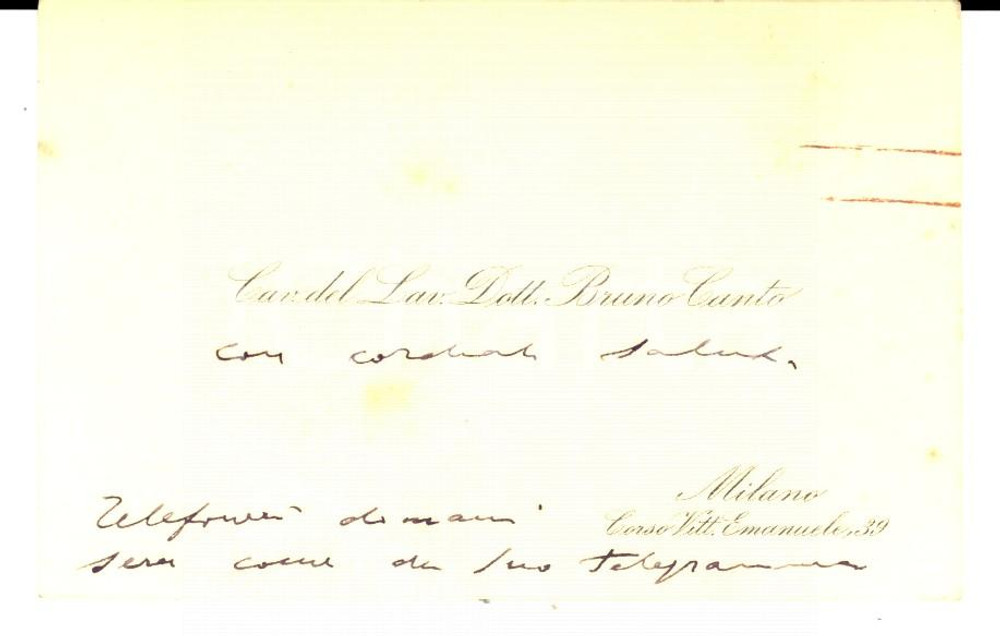 Cav. del Lav. Dott. Bruno Canto
con cordiali saluti.
Milano
Corso Vitt. Emanuele, 39
Telefonerò domani
sera come da suo telegramma